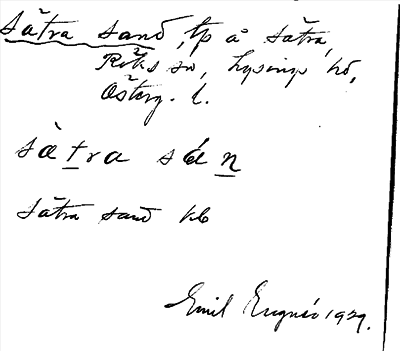 Sätra sand, tp å Sätra,
Röks sn, Lysings hd,
Österg. l.
sàtra sán
Sätra sand kb
Emil Eugnér 1929.